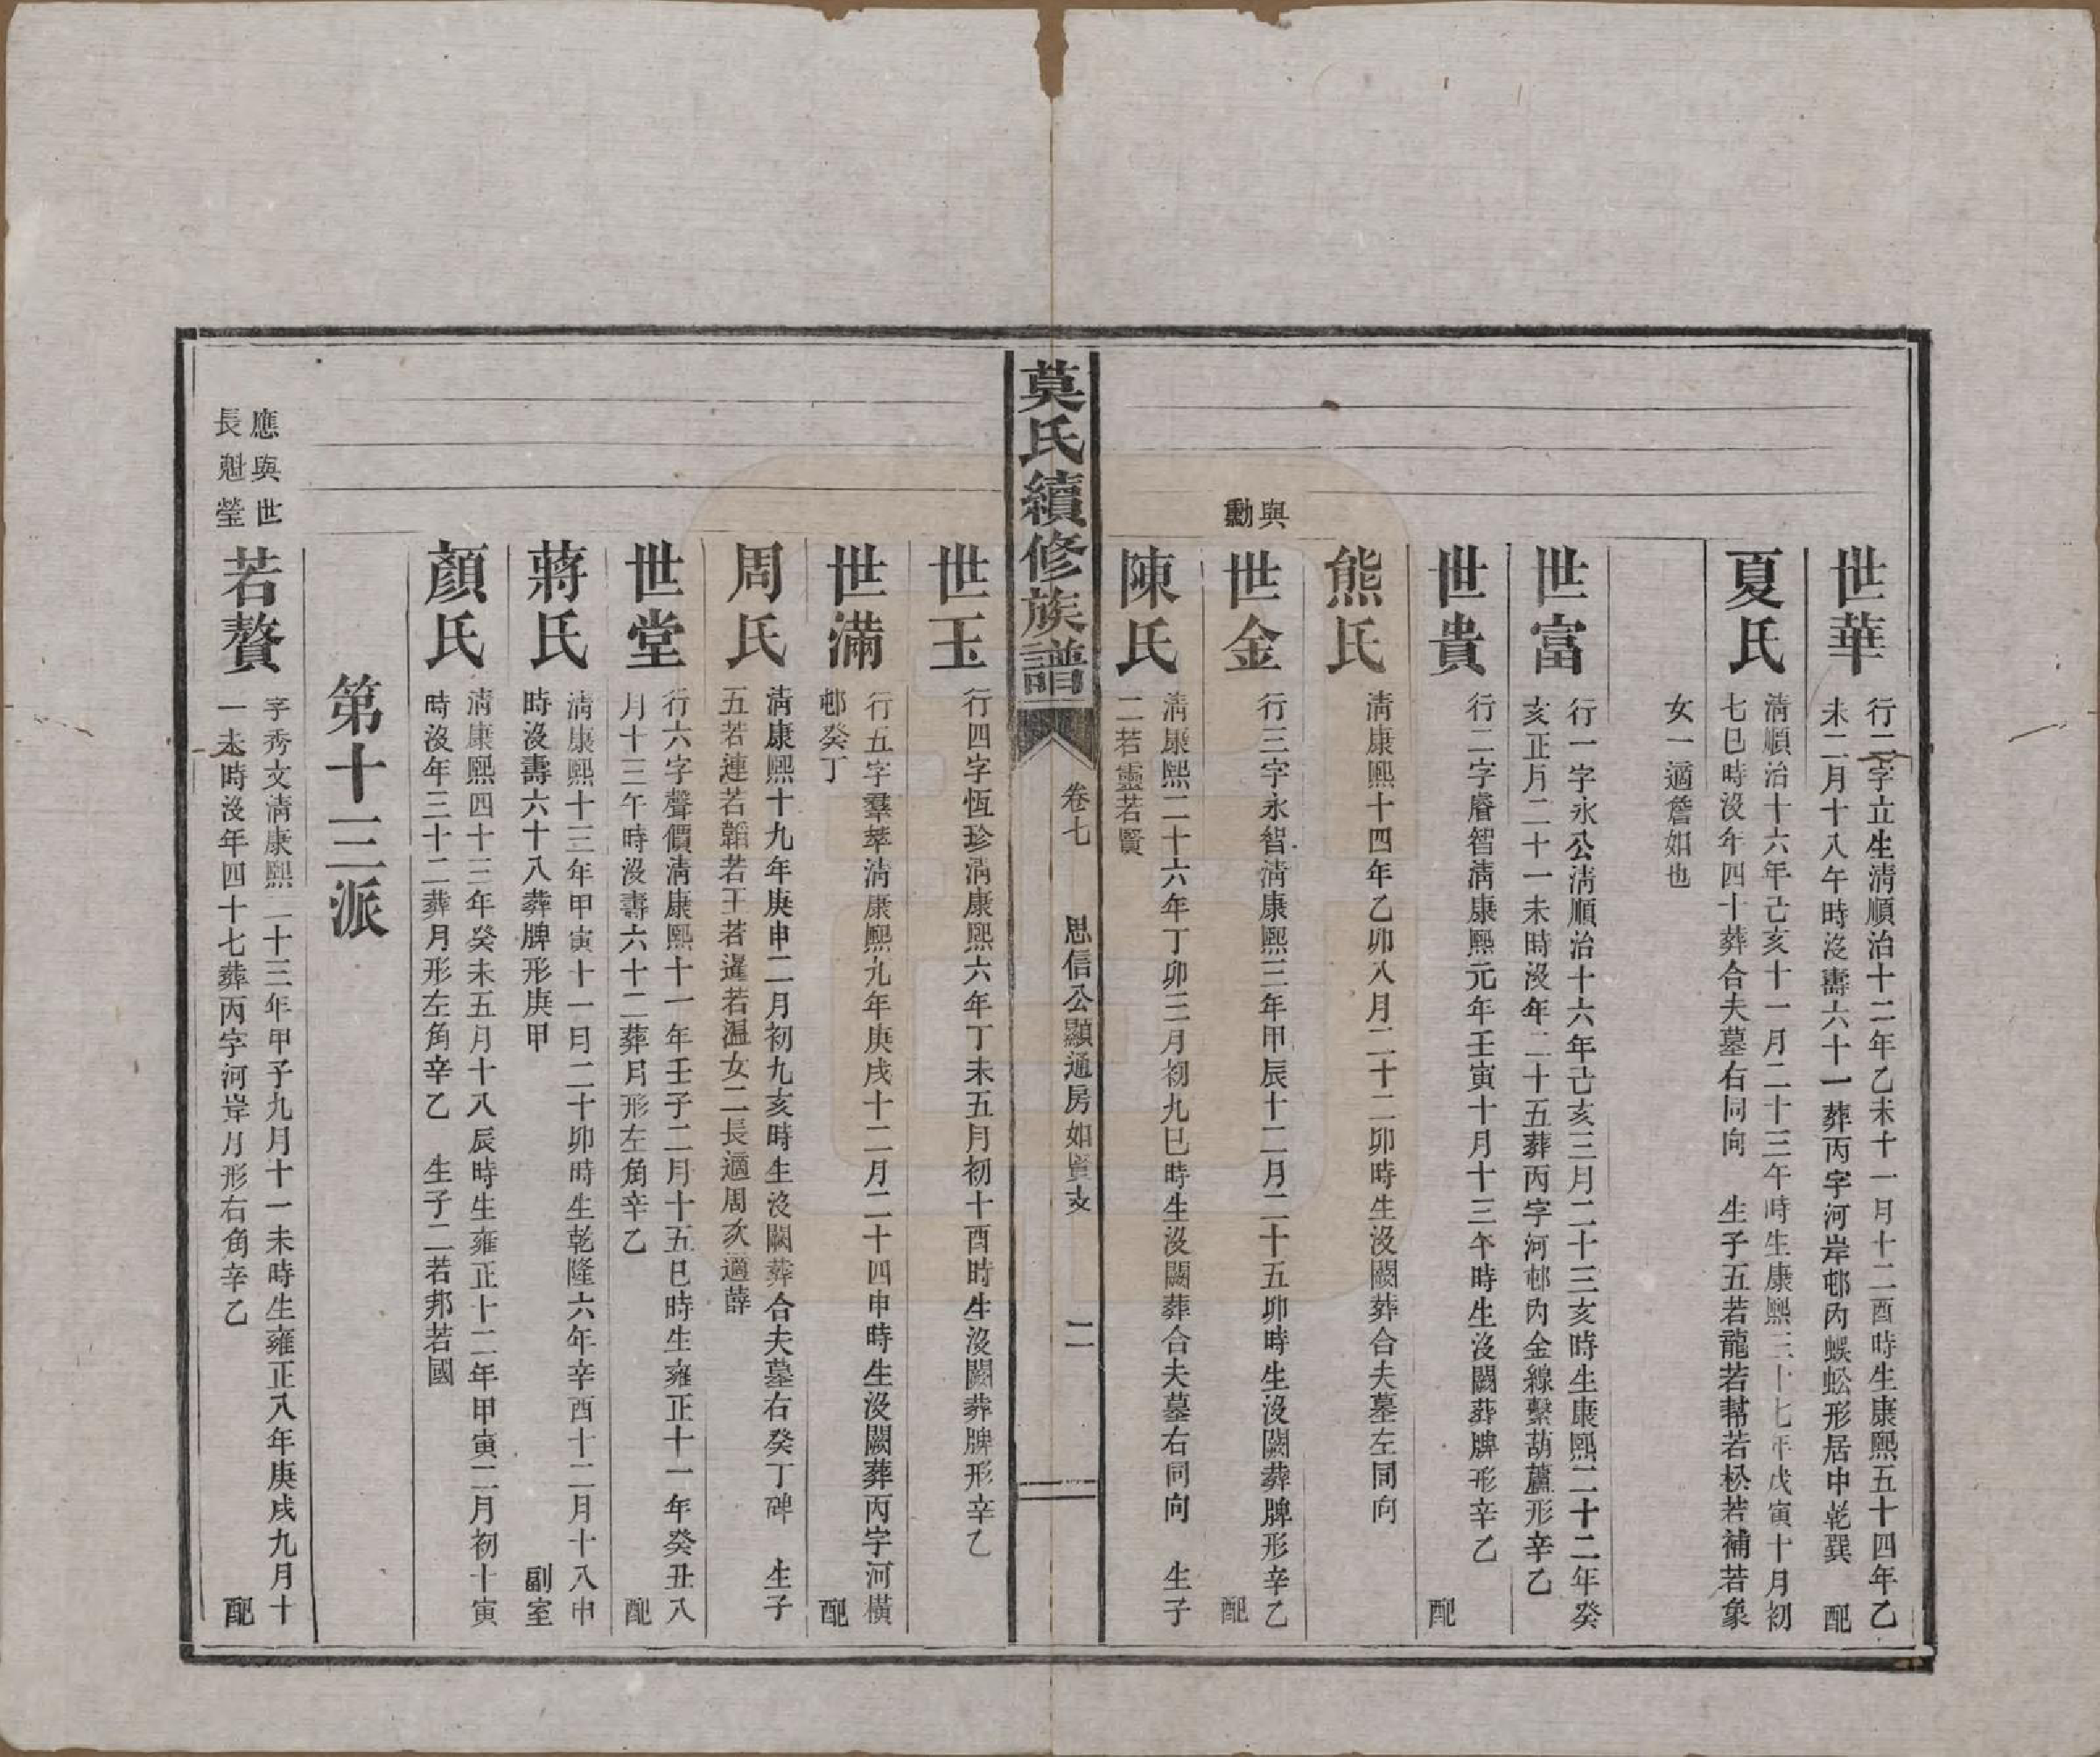 世華
行二字立生清順治十二年乙未十一月十二酉時生康熙五十四年乙
未二月十八午時沒壽六十一葬丙字河岸邨內蜈蚣形居中乾巽　配
夏氏
清順治十六年己亥十一月二十三午時生康熙三十七年戊寅十月初
七巳時沒年四十葬合夫墓右同向　生子五若龍若幇若松若補若象
女一適詹如也
世富
行一字永公清順治十六年己亥三月二十三亥時生康熙二十二年癸
亥正月二十一未時沒年二十五葬丙字河邨內金線繫葫蘆形辛乙
世貴
行二字睿智清康熙元年壬寅十月十三午時生沒闕葬牌形辛乙　配
熊氏
清康熙十四年乙卯八月二十二卯時生沒闕葬合夫墓左同向
與
勳
世金
行三字永智清康熙三年甲辰十二月二十五卯時生沒闕葬牌形辛乙
配
陳氏
清康熙二十六年丁卯三月初九巳時生沒闕葬合夫墓右同向　生子
二若靈若賢
莫氏續修族譜
卷七　思信公顯通房如賓支　二
世玉
行四字恆珍清康熙六年丁未五月初十酉時生沒闕葬牌形辛乙
世滿
行五字羣萃清康熙九年庚戌十二月二十四申時生沒闕葬丙字河橫
邨癸丁　配
周氏
清康熙十九年庚申二月初九亥時生沒闕葬合夫墓右癸丁碑　生子
五若連若韜若王若暹若溫女二長適周次適薛
世堂
行六字聲價清康熙十一年壬子二月十五巳時生雍正十一年癸丑八
月十三午時沒壽六十二葬月形左角辛乙　配
蔣氏
清康熙十三年甲寅十一月二十卯時生乾隆六年辛酉十二月十八申
時沒壽六十八葬牌形庚甲　副室
顏氏
清康熙四十二年癸未五月十八辰時生雍正十二年甲寅二月初十寅
時沒年三十二葬月形左角辛乙　生子二若邦若國
第十三派
應與世
長魁瑩
若贅
字秀文清康熙二十三年甲子九月十一未時生雍正八年庚戌九月十
一未時沒年四十七葬丙字河岸月形右角辛乙　配